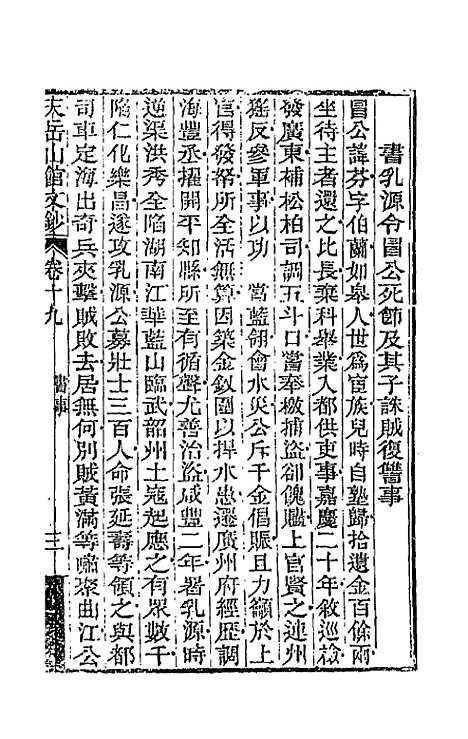 書乳源令圖公死節及其子誅賊復讐事
圖公諱芬字伯蘭如皋人世爲宦族兒時自塾歸拾遺金百餘兩
坐待主者還之比長棄科舉業入都供吏事嘉慶二十年敘巡檢
發廣東補松柏司調五斗口嘗奉檄捕盜卻餽贐上官賢之連州
猺反參軍事以功 賞藍翎會水災公斥千金倡賑且力籲於上
官得發帑所全活無算因築金釵圍以捍水患遷廣州府經歷調
海豐丞擢開平知縣所至有循聲尤善治盜咸豐二年署乳源時
逆渠洪秀全陷湖南江華藍山臨武韶州土寇起應之有眾數千
陷仁化樂昌遂攻乳源公募壯士三百人命張延壽等領之與都
司車定海出奇兵夾擊賊敗去居無何別賊黃滿等嘯聚曲江公
天岳山館文鈔 卷十九 書事 三